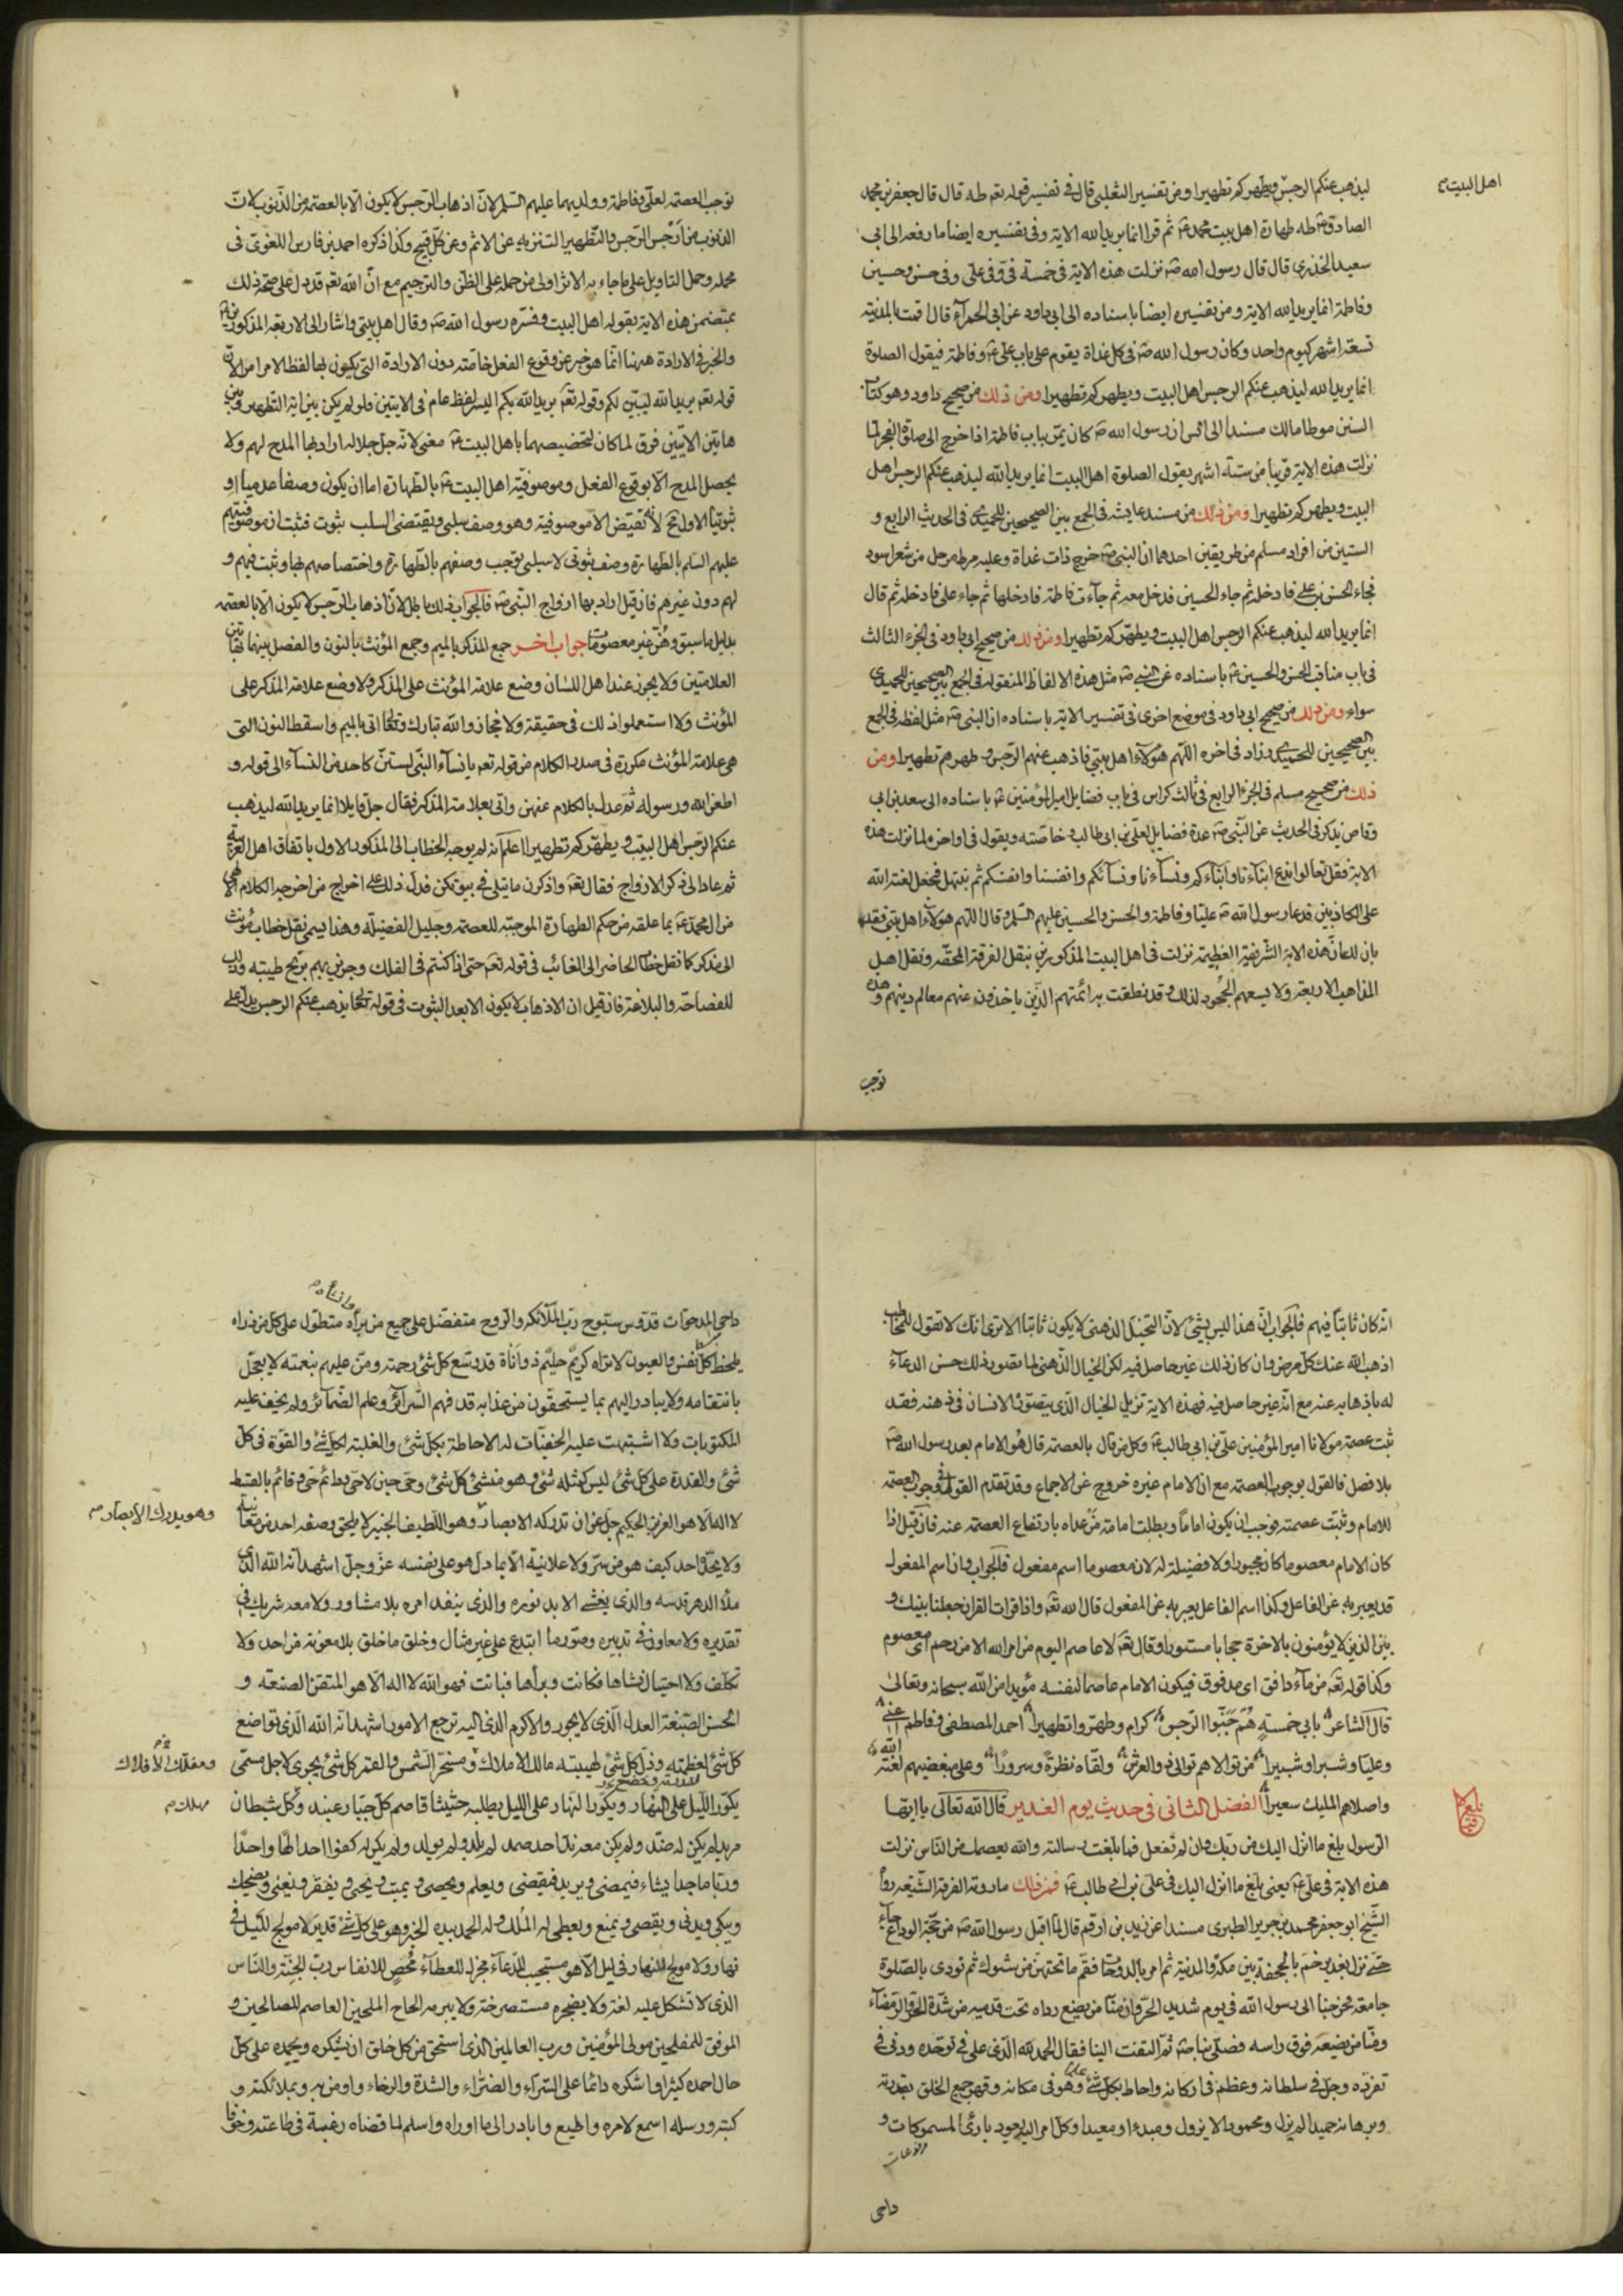 اهل البيت
ليذهب عنكم الرجس ويطهركم تطهيرا ومن تفسير الثعلبى قال فى تفسير قوله تعه طه قال قال جعفر بن محمد
الصادق ع طه طهارة اهل بيت محمد ع ثم قرا انما يريد الله الاية وفى تفسيره ايضا ما رفعه الى ابى
سعيد الخدرى قال قال رسول الله ص نزلت هذه الاية فى خمسة فىّ وفى على وفى حسن وحسين
وفاطمة انما يريد الله الاية ومن تفسيره ايضا باسناده الى ابى داود عن ابى الحمرآء قال قمت بالمدينة
تسعة اشهر كيوم واحد وكان رسول الله ص فى كل غداة يقوم على باب على ع وفاطمة فيقول الصلوة
انما يريد الله ليذهب عنكم الرجس اهل البيت ويطهركم تطهيرا ومن ذلك من صحيح داود وهو كتاب
السنن موطا مالك مسندا الى انس ان رسول الله ص كان يمر بباب فاطمة اذا خرج الى صلوة الفجر لما
نزلت هذه الاية قريبا من ستة اشهر يقول الصلوة اهل البيت انما يريد الله ليذهب عنكم الرجس اهل
البيت ويطهركم تطهيرا ومن ذلك من مسند عايشه فى الجمع بين الصحيحين للحميدى فى الحديث الرابع و
الستين من افراد مسلم من طريقين احدهما ان النبى ص خرج ذات غداة وعليه مرط مرحل من شعر اسود
فجاء الحسن بن على فادخله ثم جاء الحسين فدخل معه ثم جآءت فاطمة فادخلها ثم جاء على فادخله ثم قال
انما يريد الله ليذهب عنكم الرجس اهل البيت ويطهركم تطهيرا ومن ذلك من صحيح ابى داود فى الجزء الثالث
فى باب مناقب الحسن والحسين ع باسناده عن النبى ص مثل هذه الالفاظ المنقوله فى الجمع بين الصحيحين للحميدى
سواء ومن ذلك من صحيح ابى داود فى موضع اخرى فى تفسير الاية باسناده ان النبى ص مثل لفظه فى الجمع
بين الصحيحين للحميدى وزاد فى اخره اللهم هؤلآء اهل بيتى فاذهب عنهم الرّجس وطهرهم تطهيرا ومن
ذلك من صحيح مسلم فى الجزء الرابع فى ثالث كراس فى باب فضايل امير المؤمنين ع باسناده الى سعد بن ابى
وقاص يذكر فى الحديث عن النّبى ص عدة فضايل لعلى بن ابى طالب خاصّته ويقول فى اواخره لما نزلت هذه
الاية فقل تعالوا ندع ابنآءنا وابنآءكم ونسآءنا ونسآئكم وانفسنا وانفسكم ثم نبتهل فنجعل لعنة الله
على الكاذبين فدعا رسول الله ص عليا وفاطمة والحسن والحسين عليهم السّلم وقال اللّهم هؤلآء اهل بيتى فقد
بان لك ان هذه الاية الشّريفة العظيمة نزلت فى اهل البيت المذكورين بنقل الفرقة المحقّه ونقل اهل
المذاهب الاربعة ولا يسعهم الجحود لذلك وقد نطقت به ائمتهم الّذين ياخذون عنهم معالم دينهم وهذه
توجب
توجب العصمة لعلىّ وفاطمة وولديهما عليهم السّلم لانّ اذهاب الرّجس لا يكون الّا بالعصمة من الذّنوب لانّ
الذنوب من اَرْجَس الرّجس والتّطهير التنزيه عن الاثم وعن كلّ قبيح وكذا ذكره احمد بن فارس اللغوىّ فى
مجمله وحمل التاويل على ما جاء به الاثر اولى من حمله على الظّن والترجيم مع انّ الله تعه قد دل على صحة ذلك
بمتضمن هذه الاية بقوله اهل البيت وفسّره رسول الله ص وقال اهل بيتى واشار الى الاربعة المذكورين
والخبر فى الارادة ههنا انّما هو خبر عن وقوع الفعل خاصّة دون الارادة التى يكون بها لفظ الامر امرا لانّ
قوله تعه يريد الله ليبيّن لكم وقوله تعه يريد الله بكم اليسر لفظ عام فى الايتين ولو لم يكن بين اية التّطهير وبين
هاتين الايتين فرق لما كان لتخصيصهما باهل البيت ع معنى لانّه جلّ جلاله اراد بها المدح لهم ولا
يحصل المدح الّا بوقوع الفعل وموصوفيّة اهل البيت ع بالطّهارة اما ان يكون وصفا عدميا او
ثبوتيّا الاول مح لانّه نقيض الا موصوفية وهو وصف سلبى ويقتضى السلب ثبوت فثبت ان موصوفيتهم
عليهم السّلم بالطّهارة وصف ثبوتى لا سلبى توجب وصفهم بالطّهارة واختصاصهم بها وثبت فيهم و
لهم دون غيرهم فان قيل اراد بها ازواج النّبى ص فالجواب ذلك باطل لانّ اذهاب الرّجس لا يكون الّا بالعصمة
بدليل ما سبق وهُنّ غير معصومات جواب اخر جمع المذكر بالميم وجمع المؤنث بالنّون والفصل بينهما بهاتين
العلامتين ولا يجوز عند اهل اللسان وضع علامة المؤنث على المذكر ولا وضع علامة المذكر على
المؤنث ولا استعملوا ذلك فى حقيقة ولا مجاز والله تبارك وتعالى اتى بالميم واسقط النون التى
هى علامة المؤنث مكررة فى صدر الكلام من قوله تعه يا نسآء النّبى لستنّ كاحد من النسآء الى قوله و
اطعن الله ورسوله ثمّ عدل بالكلام عنهن واتى بعلامة المذكر فقال جلّ قايلا انما يريد الله ليذهب
عنكم الرّجس اهل البيت ويطهّركم تطهيرا اعلم انه لم يوجه الخطاب الى المذكور الاول باتفاق اهل العربيّة
ثم عاد الى ذكر الازواج فقال تعه واذكرن ما يتلى فى بيوتكن فدلّ ذلك على اخراج من اخرجه الكلام الالهى
من ال محمد ع بما علقه من حكم الطهارة الموجبة للعصمة وجليل الفضيلة وهذا يسمى نقل خطاب مؤنث
الى مذكر كما نقل خطاب الحاضر الى الغائب فى قوله تعه حتى اذا كنتم فى الفلك وجرين بهم بريح طيبة وذلك
للفصاحة والبلاغة فان قيل ان الاذهاب لا يكون الا بعد الثبوت فى قوله تعالى ليذهب عنكم الرجس يدل على
انّه كان ثابتا فيهم فالجواب انّ هذا ليس بشئ لانّ التخيّل الذهنى لا يكون ثابتا الا ترى انّك لا تقول للمخاطب
اذهب الله عنك كلّ مرض وان كان ذلك غير حاصل فيه لكن الخيال الذّهنى لما تصور ذلك حسن الدعآء
له باذهابه عنه مع انّه غير حاصل فيه فهذه الاية تزيل الخيال الّذى يتصوّره الانسان فى ذهنه فقد
ثبت عصمة مولانا امير المؤمنين على بن ابى طالب ع وكل من قال بالعصمة قال هُو الامام بعد رسول الله ص
بلا فصل فالقول بوجوب العصمة مع ان الامام غيره خروج عن الاجماع وقد تقدم القول فى وجوب العصمة
للامام وثبت عصمته فوجب ان يكون اماماً وبطلت امامة من عداه بارتفاع العصمة عنه فان قيل اذا
كان الامام معصوما كان مجبورا ولا فضيلة له لان معصوما اسم مفعول فالجواب فان اسم المفعول
قد يعبر به عن الفاعل وكذا اسم الفاعل يعبر به عن المفعول قال الله تعه واذا قرات القران جعلنا بينك و
بين الذين لا يؤمنون بالاخرة حجابا مستورا وقال تعه لا عاصم اليوم من امر الله الا من رحم اى معصوم
وكذا قوله تعه من مآء دافق اى مدفوق فيكون الامام عاصما لنفسه مؤيدا من الله سبحانه وتعالى
قال الشاعر بابى خمسةٍ هُم جُنّبوا الرّجس كرام وطهّروا تطهيرا احمد المصطفى وفاطم اعنى
وعليّا وشبرا وشبيرا من تولاهم تولاه ذو العرش ولقّاه نظرةً وسرورًا وعلى مبغضيهم لعنة الله
واصلاهم المليك سعيرا الفصل الثانى فى حديث يوم الغدير قال الله تعالى يا ايّها
الرّسول بلغ ما انزل اليك من ربك وان لم تفعل فما بلغت رسالته والله يعصمك من النّاس نزلت
هذه الاية فى على ع يعنى بلّغ ما انزل اليك فى على بن ابى طالب ع فمن ذلك ما روته الفرقة الشّيعه رواه
الشيخ ابو جعفر محمد بن جرير الطبرى مسندا عن زيد بن ارقم قال لمّا اقبل رسول الله ص من حجّة الوداع جآء
حتى نزل بغدير خم بالجحفة بين مكة والمدينة ثم امر بالدوحات فقم ما تحتهن من شوك ثم نودى بالصّلوة
جامعة فخرجنا الى رسول الله فى يوم شديد الحرّ وان منّا من يضع رداه تحت قدميه من شدّة الحرّ والرّمضآء
ومنّا من يضعه فوق راسه فصلّى بنا ص ثمّ التفت الينا فقال الحمد لله الّذى على فى توحّده ودنى فى
تفرّده وجلّ فى سلطانه وعظم فى اركانه واحاط بكل شئ علما وهو فى مكانه وقهر جميع الخلق بقدرته
وبرهانه حميدا لم يزل ومحمودا لا يزول ومبدءا ومعيدا وكل امر اليه يعود بارئ المسموكات و
داحى
داحى المدحوّات قدّوس سبّوح ربّ الملآئكة والرّوح متفضّل على جميع من برأه متطوّل على كل من ذراه
يلحظ كلّ نفس والعيون لا تراه كريم حليم ذو اَناة قد وسع كلّ شئ رحمته ومنّ عليهم بنعمته لا يعجّل
بانتقامه ولا يبادر اليهم بما يستحقون من عذابه قد فهم السّرآئر وعلم الضّمآئر ولم يخف عليه
المكنونات ولا اشتبهت عليه الخفيّات له الاحاطة بكلّ شئ والغلبة لكل شئ والقوّة فى كلّ
شئ والقدرة على كلّ شئ ليس كمثله شئ وهو منشئ كلّ شئ وحى حين لا حىّ دائم حىّ وقائم بالقسط
وهو يدرك الأبصار
لا اله الّا هو العزيز الحكيم جلّ عن ان تدركه الابصار وهو اللّطيف الخبير لا يلحق وصفه احد من معاينة
ولا يحدّه احد كيف هو من سرّ ولا علانية الّا بما دلّ هو على نفسه عزّ وجلّ اشهد انّه الله الّذى
ملأ الدهر قدسه والّذى يغشى الابد نوره والذى ينفد امره بلا مشاور ولا معه شريك فى
تقديره ولا معاون فى تدبيره وصوّر ما ابتدع على غير مثال وخلق ما خلق بلا معونة من احد ولا
تكلّف ولا احتيال انشاها فكانت وبرأها فبانت فهو الله لا اله الّا هو المتقن الصنعة و
الحسن الصّنعة العدل الّذى لا يجور والاكرم الذى اليه ترجع الامور اشهد انّه الله الّذى تواضع
كلّ شئ لعظمته وذلّ كلّ شئ لهيبته مالك الاملاك ومسخّر الشمس والقمر كل شئ يجرى لاجل مسمّى
ومفلك الأفلاك
يكوّر اللّيل على النّهار ويكوّر النهار على الليل يطلبه حثيثا قاصم كلّ جبّار عنيد وكلّ شيطان
مهلك
مريد لم يكن له ضدّ ولم يكن معه ندّ احد صمد لم يلد ولم يولد ولم يكن له كفوا احد الهًا واحدًا
وربّا ماجدا يشاء فيمضى ويريد فيقضى ويعلم ويحصى ويميت ويحيى ويفقر ويغنى ويضحك
ويبكى ويدنى ويقصى ويمنع ويعطى له المُلك وله الحمد بيده الخير وهو على كلّ شئ قدير لا مولج للّيل فى
نهار ولا مولج للنهار فى ليل الّا هو مستجيب الدّعآء مجزل للعطآء مُحصٍ للانفاس ربّ الجنّة والنّاس
الذى لا تشكل عليه لغة ولا يضجره مستصرخة ولا يبرمه الحاح الملحين العاصم للصالحين و
الموفق للمفلحين مولى المؤمنين وربّ العالمين الذى استحق من كل خلق ان يشكره ويحمده على كلّ
حال احمده كثيرا واشكره دائما على السّرآء والضّرآء والشدة والرخاء واومن به وبملائكته و
كتبه ورسله اسمع لامره واطيع وابادر الى ما اوراه واسلم لما قضاه رغبة فى طاعته وخوفا